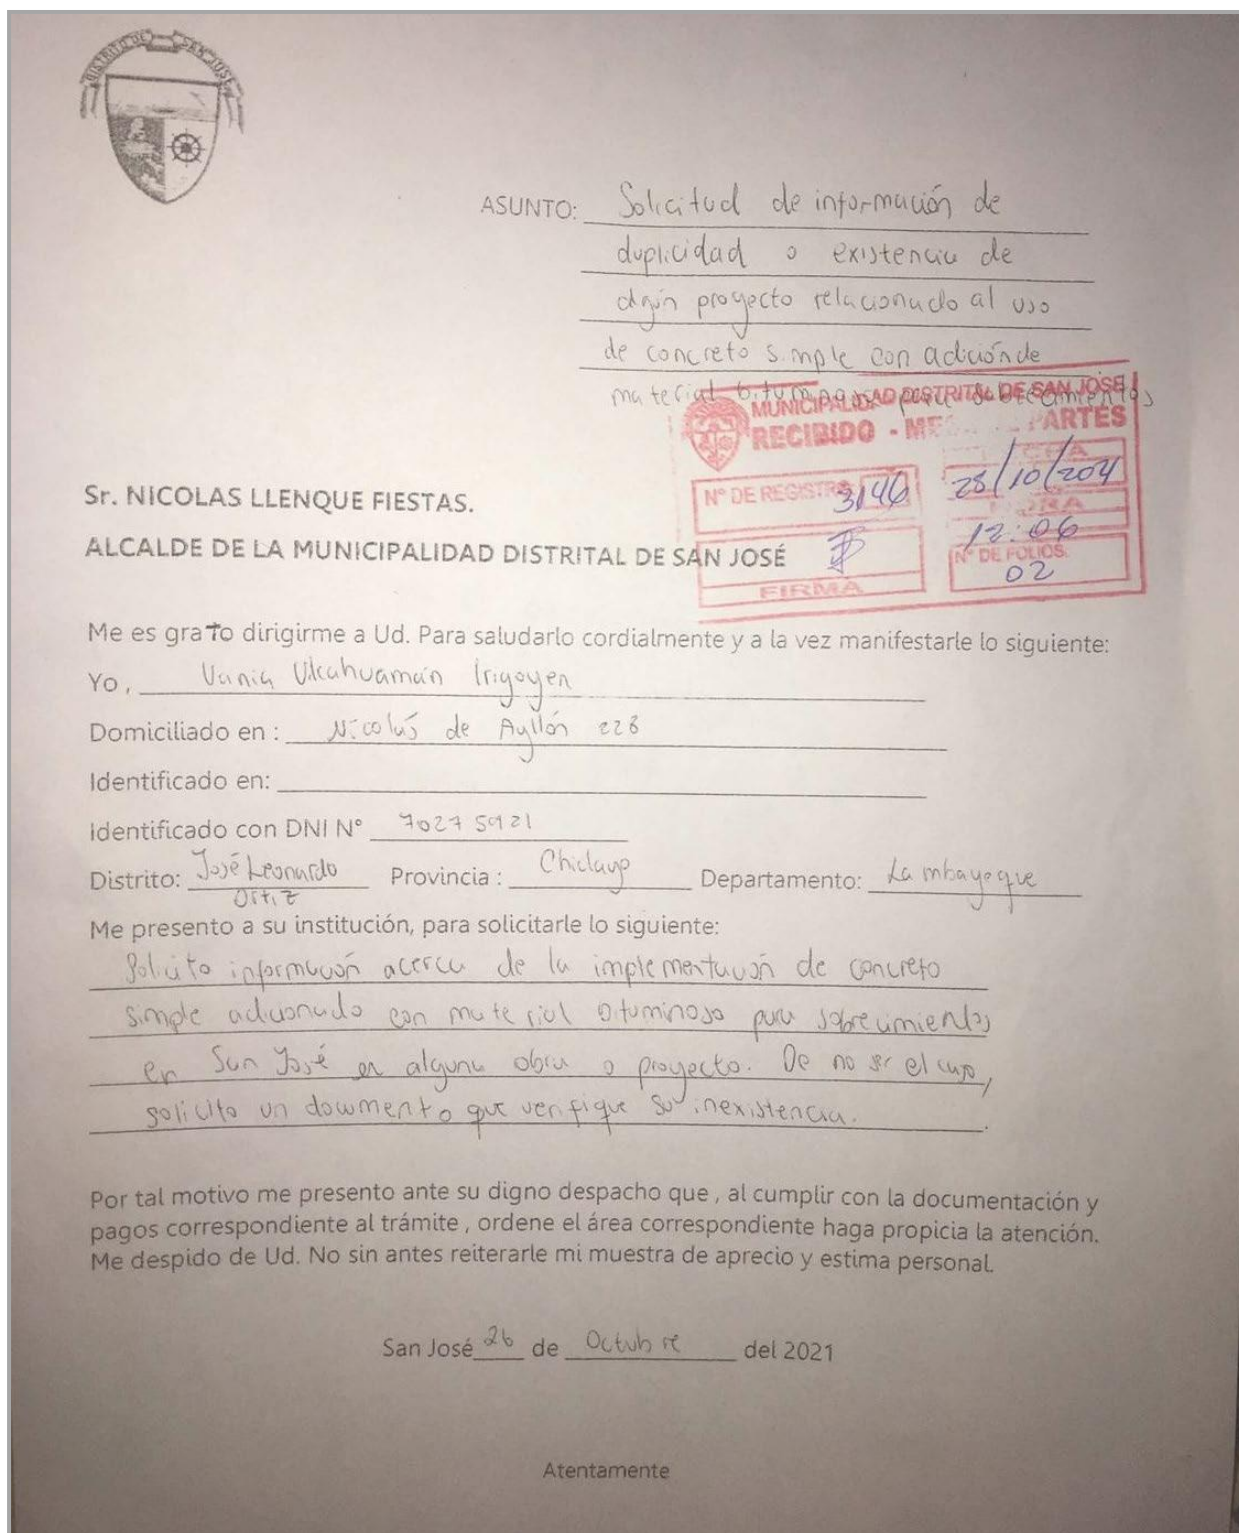 DISTRITO DE SAN JOSE
ASUNTO: Solicitud de información de
duplicidad o existencia de
algún proyecto relacionado al uso
de concreto simple con adición de
material bituminoso para sobrecimientos
MUNICIPALIDAD DISTRITAL DE SAN JOSE
RECIBIDO - PARTES
Nº DE REGISTRO 3146
28/10/2021
HORA
12:06
Nº DE FOLIOS:
02
FIRMA
Sr. NICOLAS LLENQUE FIESTAS.
ALCALDE DE LA MUNICIPALIDAD DISTRITAL DE SAN JOSÉ
Me es grato dirigirme a Ud. Para saludarlo cordialmente y a la vez manifestarle lo siguiente:
Yo, Vania Irigoyen
Domiciliado en : Nicolás de Ayllón 228
Identificado en:
Identificado con DNI Nº 70275921
Distrito: José Leonardo Ortiz Provincia : Chiclayo Departamento: Lambayeque
Me presento a su institución, para solicitarle lo siguiente:
Solicito información acerca de la implementación de concreto
simple adicionado con material bituminoso para sobrecimientos
en San José en alguna obra o proyecto. De no ser el caso,
solicito un documento que verifique su inexistencia.
Por tal motivo me presento ante su digno despacho que , al cumplir con la documentación y
pagos correspondiente al trámite , ordene el área correspondiente haga propicia la atención.
Me despido de Ud. No sin antes reiterarle mi muestra de aprecio y estima personal.
San José 26 de Octubre del 2021
Atentamente